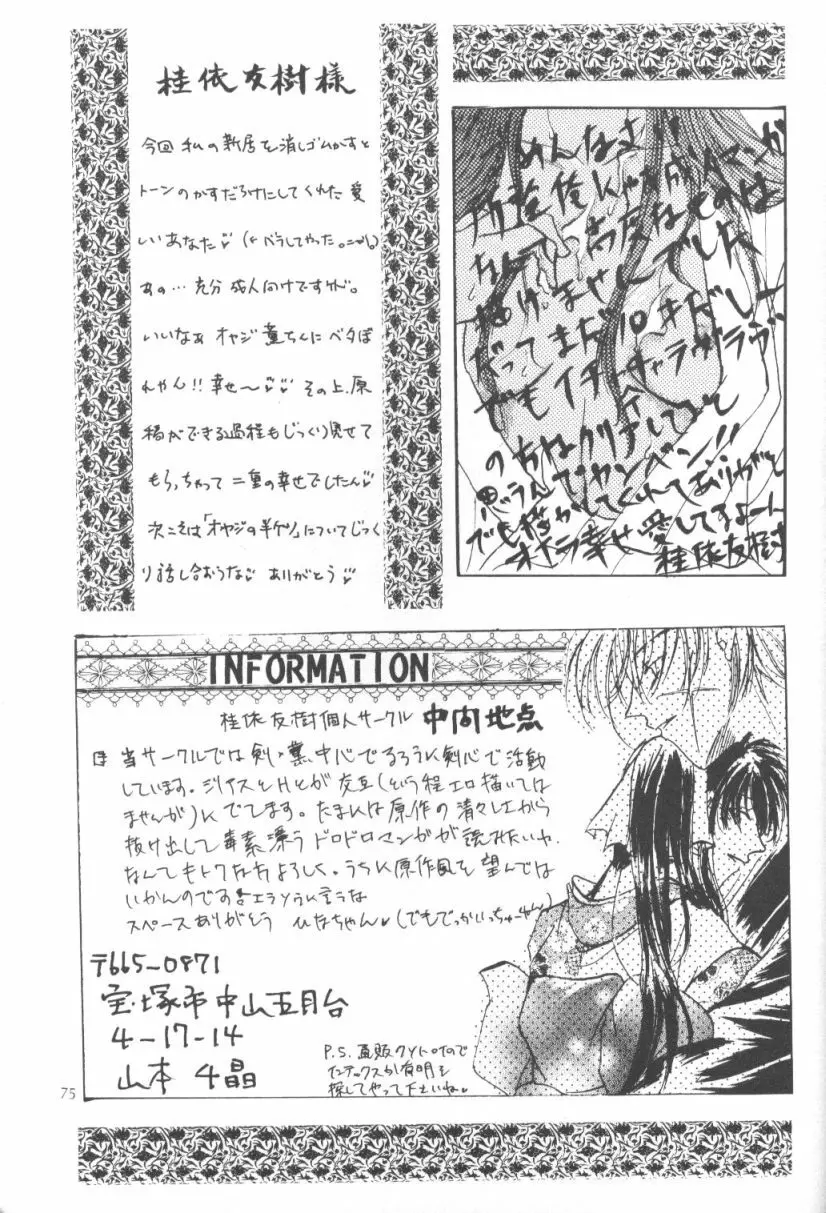 桂依友樹様
今回 私の新居を消しゴムかすと
トーンのかすだらけにしてくれた愛
しいあなた (←バラしてやった。ニヤリ)
あの… 充分 成人向けですけど。
いいなぁ オヤジ 薫ちんにベタぼ
れやん!! 幸せ〜 その上、原
稿ができる過程もじっくり見せて
もらっちゃって 二重の幸せでしたん
次こそは「オヤジの半ケツ」についてじっく
り話し合おうな ありがとう
ごめんなさい!!
所詮俺にゃ成人マンガ
なんて高度なものは
描けませんでした
だってまだ10才だしー
でもイチャイチャラヴラヴ
のちねクリアしてると
思うんでカンベン!!
でも描かしてくれてありがと
オイラ幸せ愛してるよーん
桂依友樹
INFORMATION
桂依友樹個人サークル 中間地点
当サークルでは剣・薫中心でるろうに剣心で活動
しています。シリアスとHとが交互(という程エロ描いては
ませんが)にでてます。たまには原作の清々しエから
抜け出して毒素漂うドロドロマンガが読みたいわ
なんてもトクな方よろしく。うちに原作風を望んでは
いかんのです
スペースありがとう ひなちゃん (でもでっかいっちゅーねん)
〒665-0871
宝塚市中山五月台
4-17-14
山本 千晶
P.S. 通販
インデックスか有明を
探してやって下さいね
75